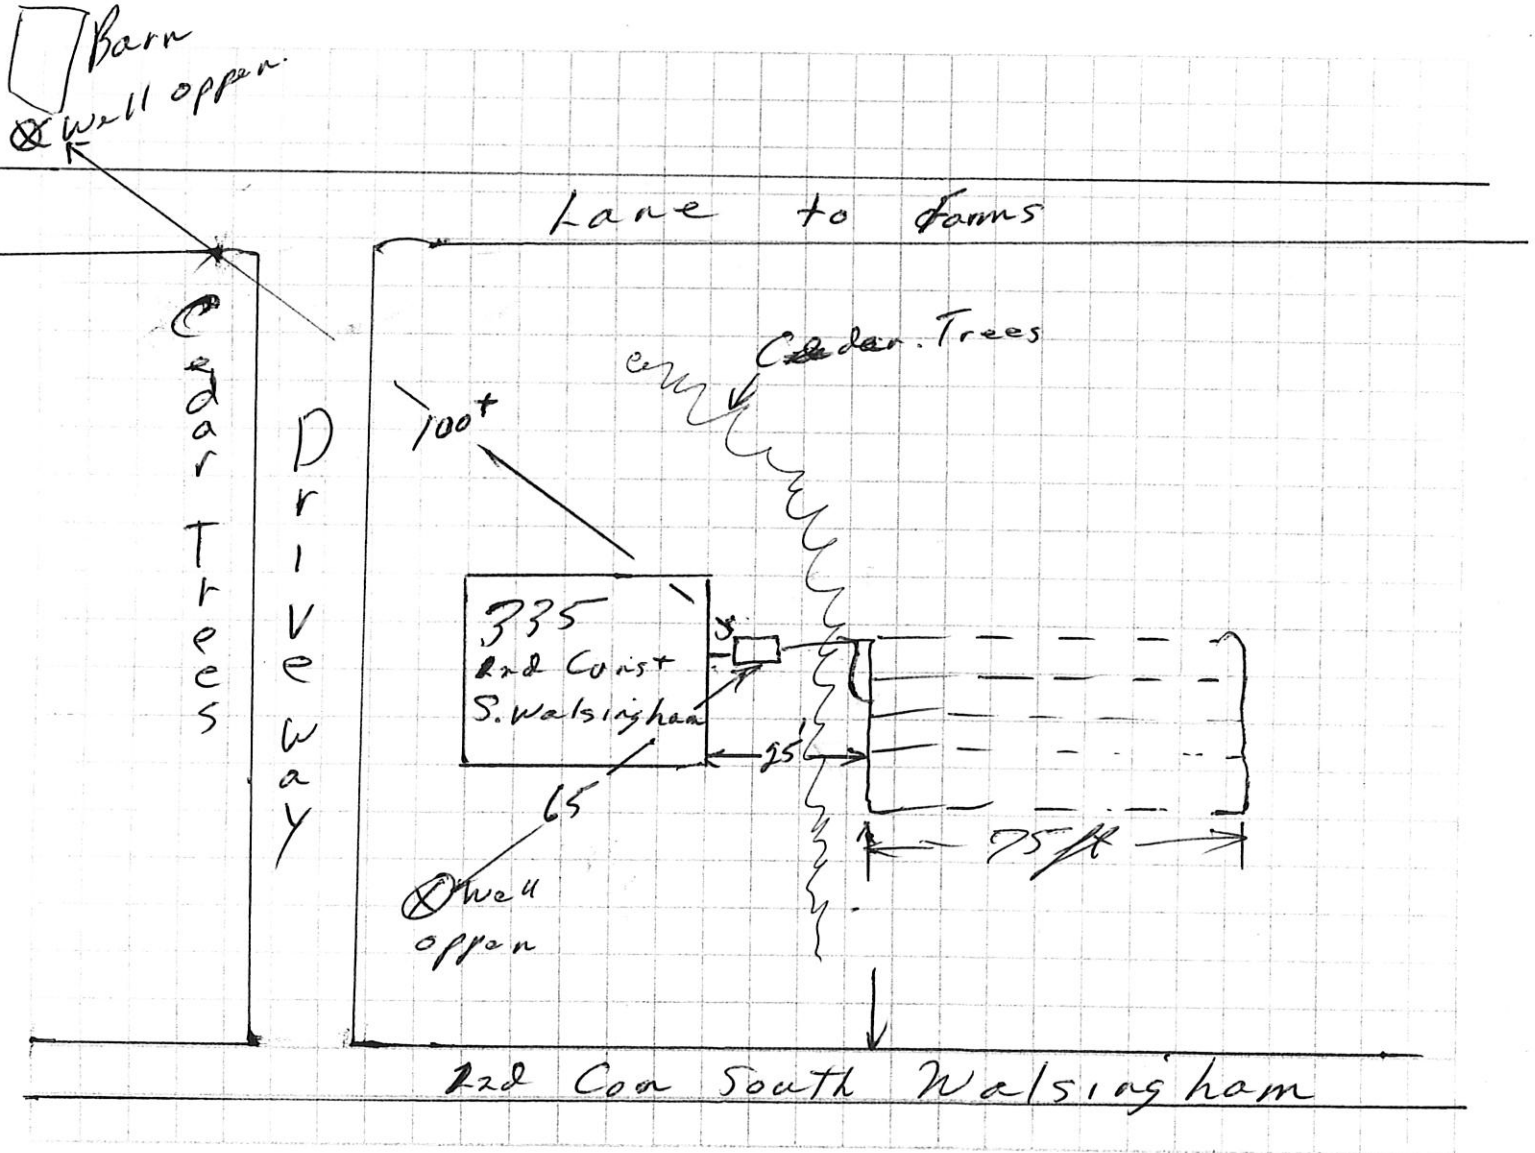 Barn
Well oppen.
Lane to Farms
Cedar Trees
Driveway
Cedar. Trees
100+
5'
335
2nd Const
S. Walsingham
25'
65
75 ft
Well
oppen
2nd Con South Walsingham